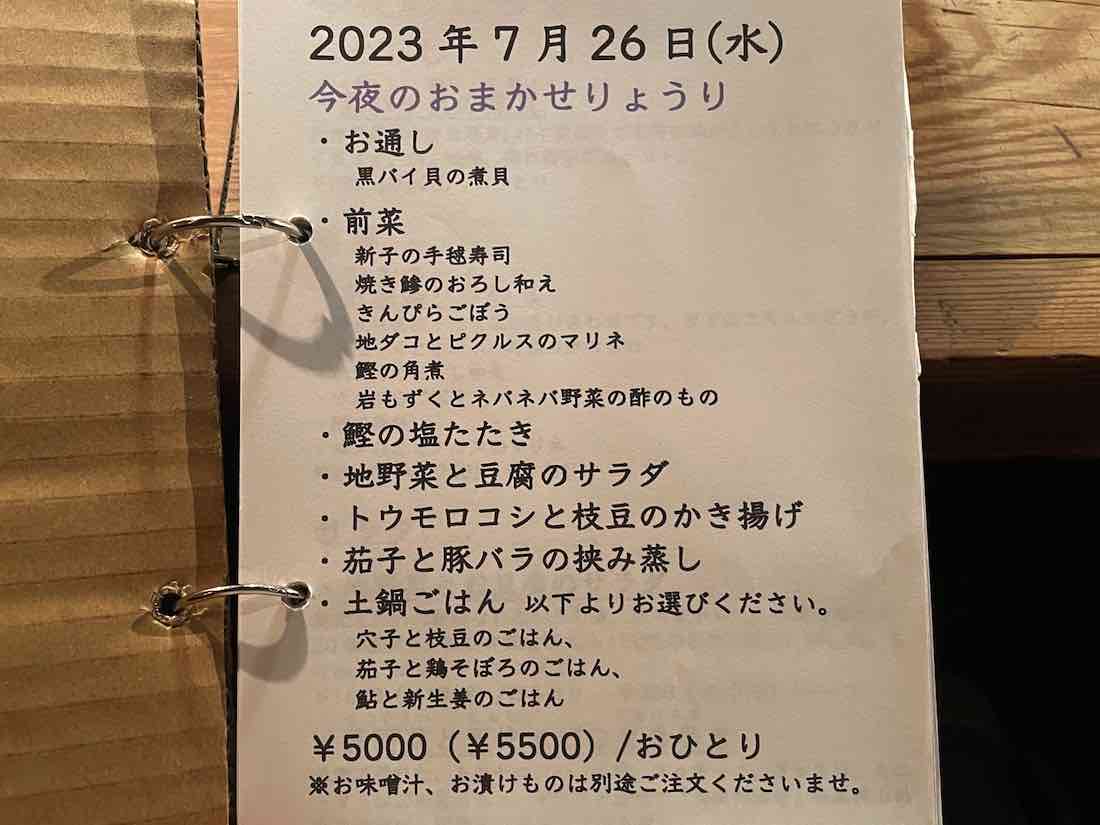 2023年7月26日(水)
今夜のおまかせりょうり
・お通し
黒バイ貝の煮貝
・前菜
新子の手毬寿司
焼き鯵のおろし和え
きんぴらごぼう
地ダコとピクルスのマリネ
鰹の角煮
岩もずくとネバネバ野菜の酢のもの
・鰹の塩たたき
・地野菜と豆腐のサラダ
・トウモロコシと枝豆のかき揚げ
・茄子と豚バラの挟み蒸し
・土鍋ごはん 以下よりお選びください。
穴子と枝豆のごはん、
茄子と鶏そぼろのごはん、
鮎と新生姜のごはん
￥5000（￥5500）/おひとり
※お味噌汁、お漬けものは別途ご注文くださいませ。